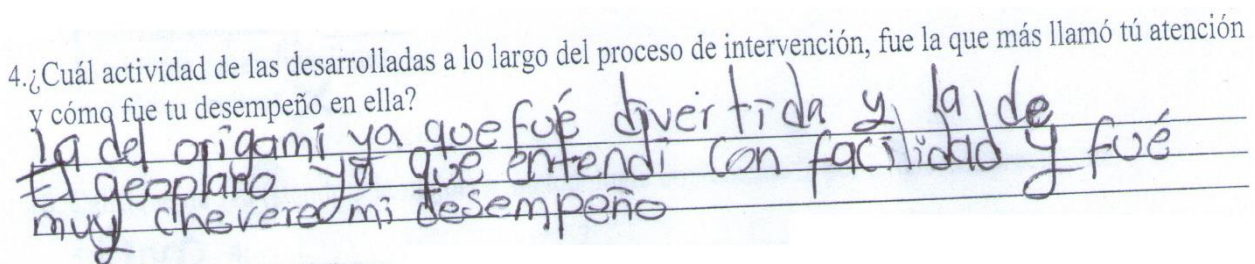 4.¿Cuál actividad de las desarrolladas a lo largo del proceso de intervención, fue la que más llamó tú atención
y cómo fue tu desempeño en ella?
la del origami ya que fué divertida y la de
El geoplano ya que entendi con facilidad y fué
muy chevere mi desempeño